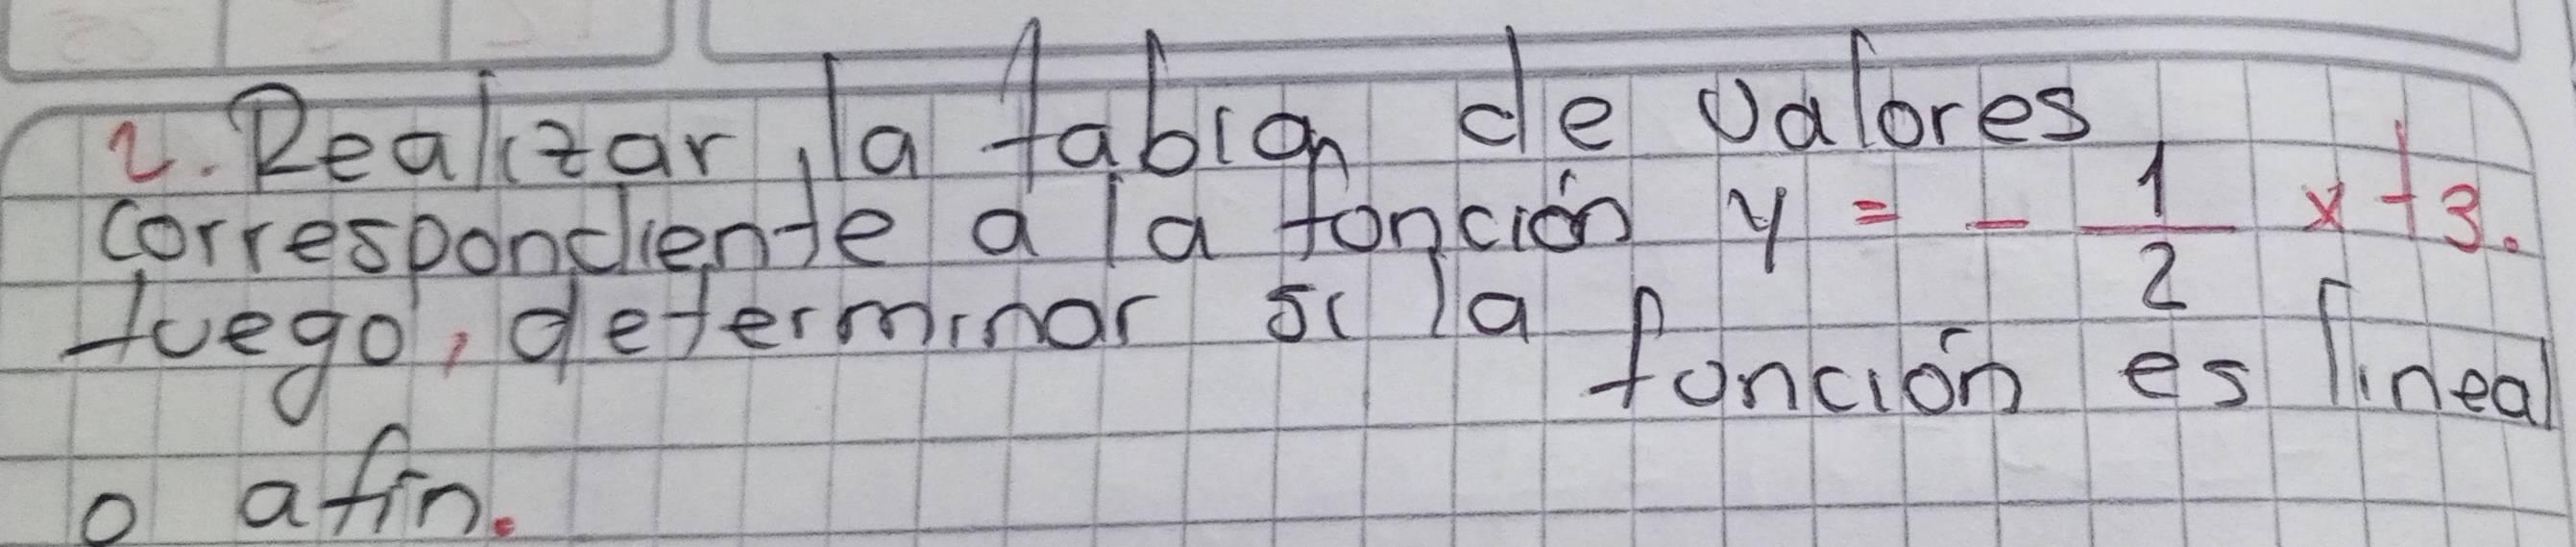 2. Realizar, la tabla de valores
correspondiente a la fonción y = - 1/2 x+3.
tuego, determinar si la
fonción es lineal
o afín.